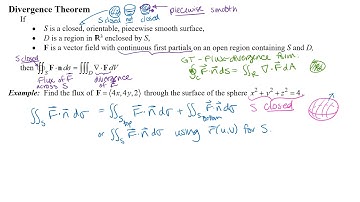 Divergence Theorem
If
S closed not closed
piecewise smooth
• S is a closed, orientable, piecewise smooth surface,
• D is a region in ℝ³ enclosed by S,
• F is a vector field with continuous first partials on an open region containing S and D,
S closed
then ∬_S F·n dσ = ∭_D ∇·F dV
Flux of F across S
divergence of F
GT - Flux-divergence form
∮_C F⃗·n⃗ ds = ∬_R ∇·F⃗ dA
Example: Find the flux of F = ⟨4x, 4y, 2⟩ through the surface of the sphere x² + y² + z² = 4.
S closed
∬_S F⃗·n⃗ dσ = ∬_{S top} F⃗·n⃗ dσ + ∬_{S bottom} F⃗·n⃗ dσ
or ∬_S F⃗·n⃗ dσ using r⃗(u,v) for S